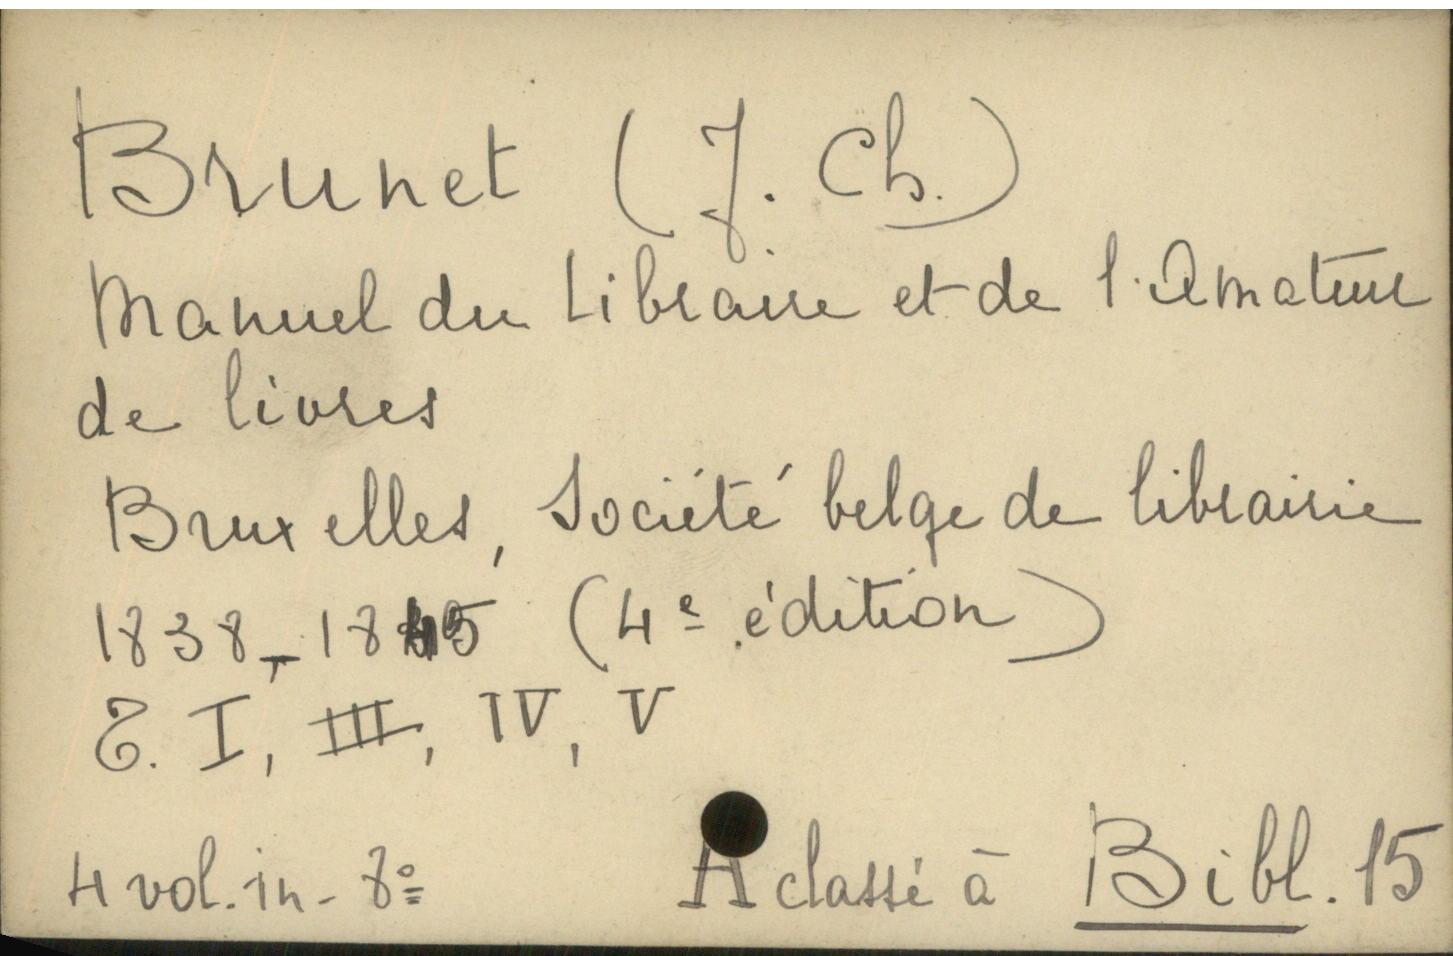 Brunet (J. Ch.)
Manuel du Libraire et de l'Amateur
de livres
Bruxelles, Société belge de librairie
1838-1845 (4e édition)
T. I, III, IV, V
4 vol. in-8º
A classé à Bibl. 15